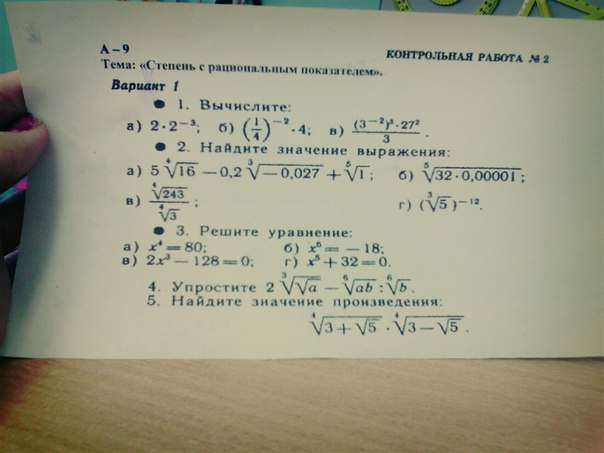 А – 9 КОНТРОЛЬНАЯ РАБОТА № 2
Тема: «Степень с рациональным показателем».
Вариант 1
● 1. Вычислите:
а) 2·2⁻³; б) (1/4)⁻²·4; в) (3⁻²)³·27²/3.
● 2. Найдите значение выражения:
а) 5⁴√16 − 0,2 ³√−0,027 + ⁵√1; б) ⁵√32·0,00001;
в) ⁴√243/⁴√3; г) (³√5)⁻¹².
● 3. Решите уравнение:
а) x⁴ = 80; б) x⁶ = − 18;
в) 2x³ − 128 = 0; г) x⁵ + 32 = 0.
4. Упростите 2 ³√√a − ⁶√ab : ⁶√b.
5. Найдите значение произведения:
⁴√3 + √5 · ⁴√3 − √5.